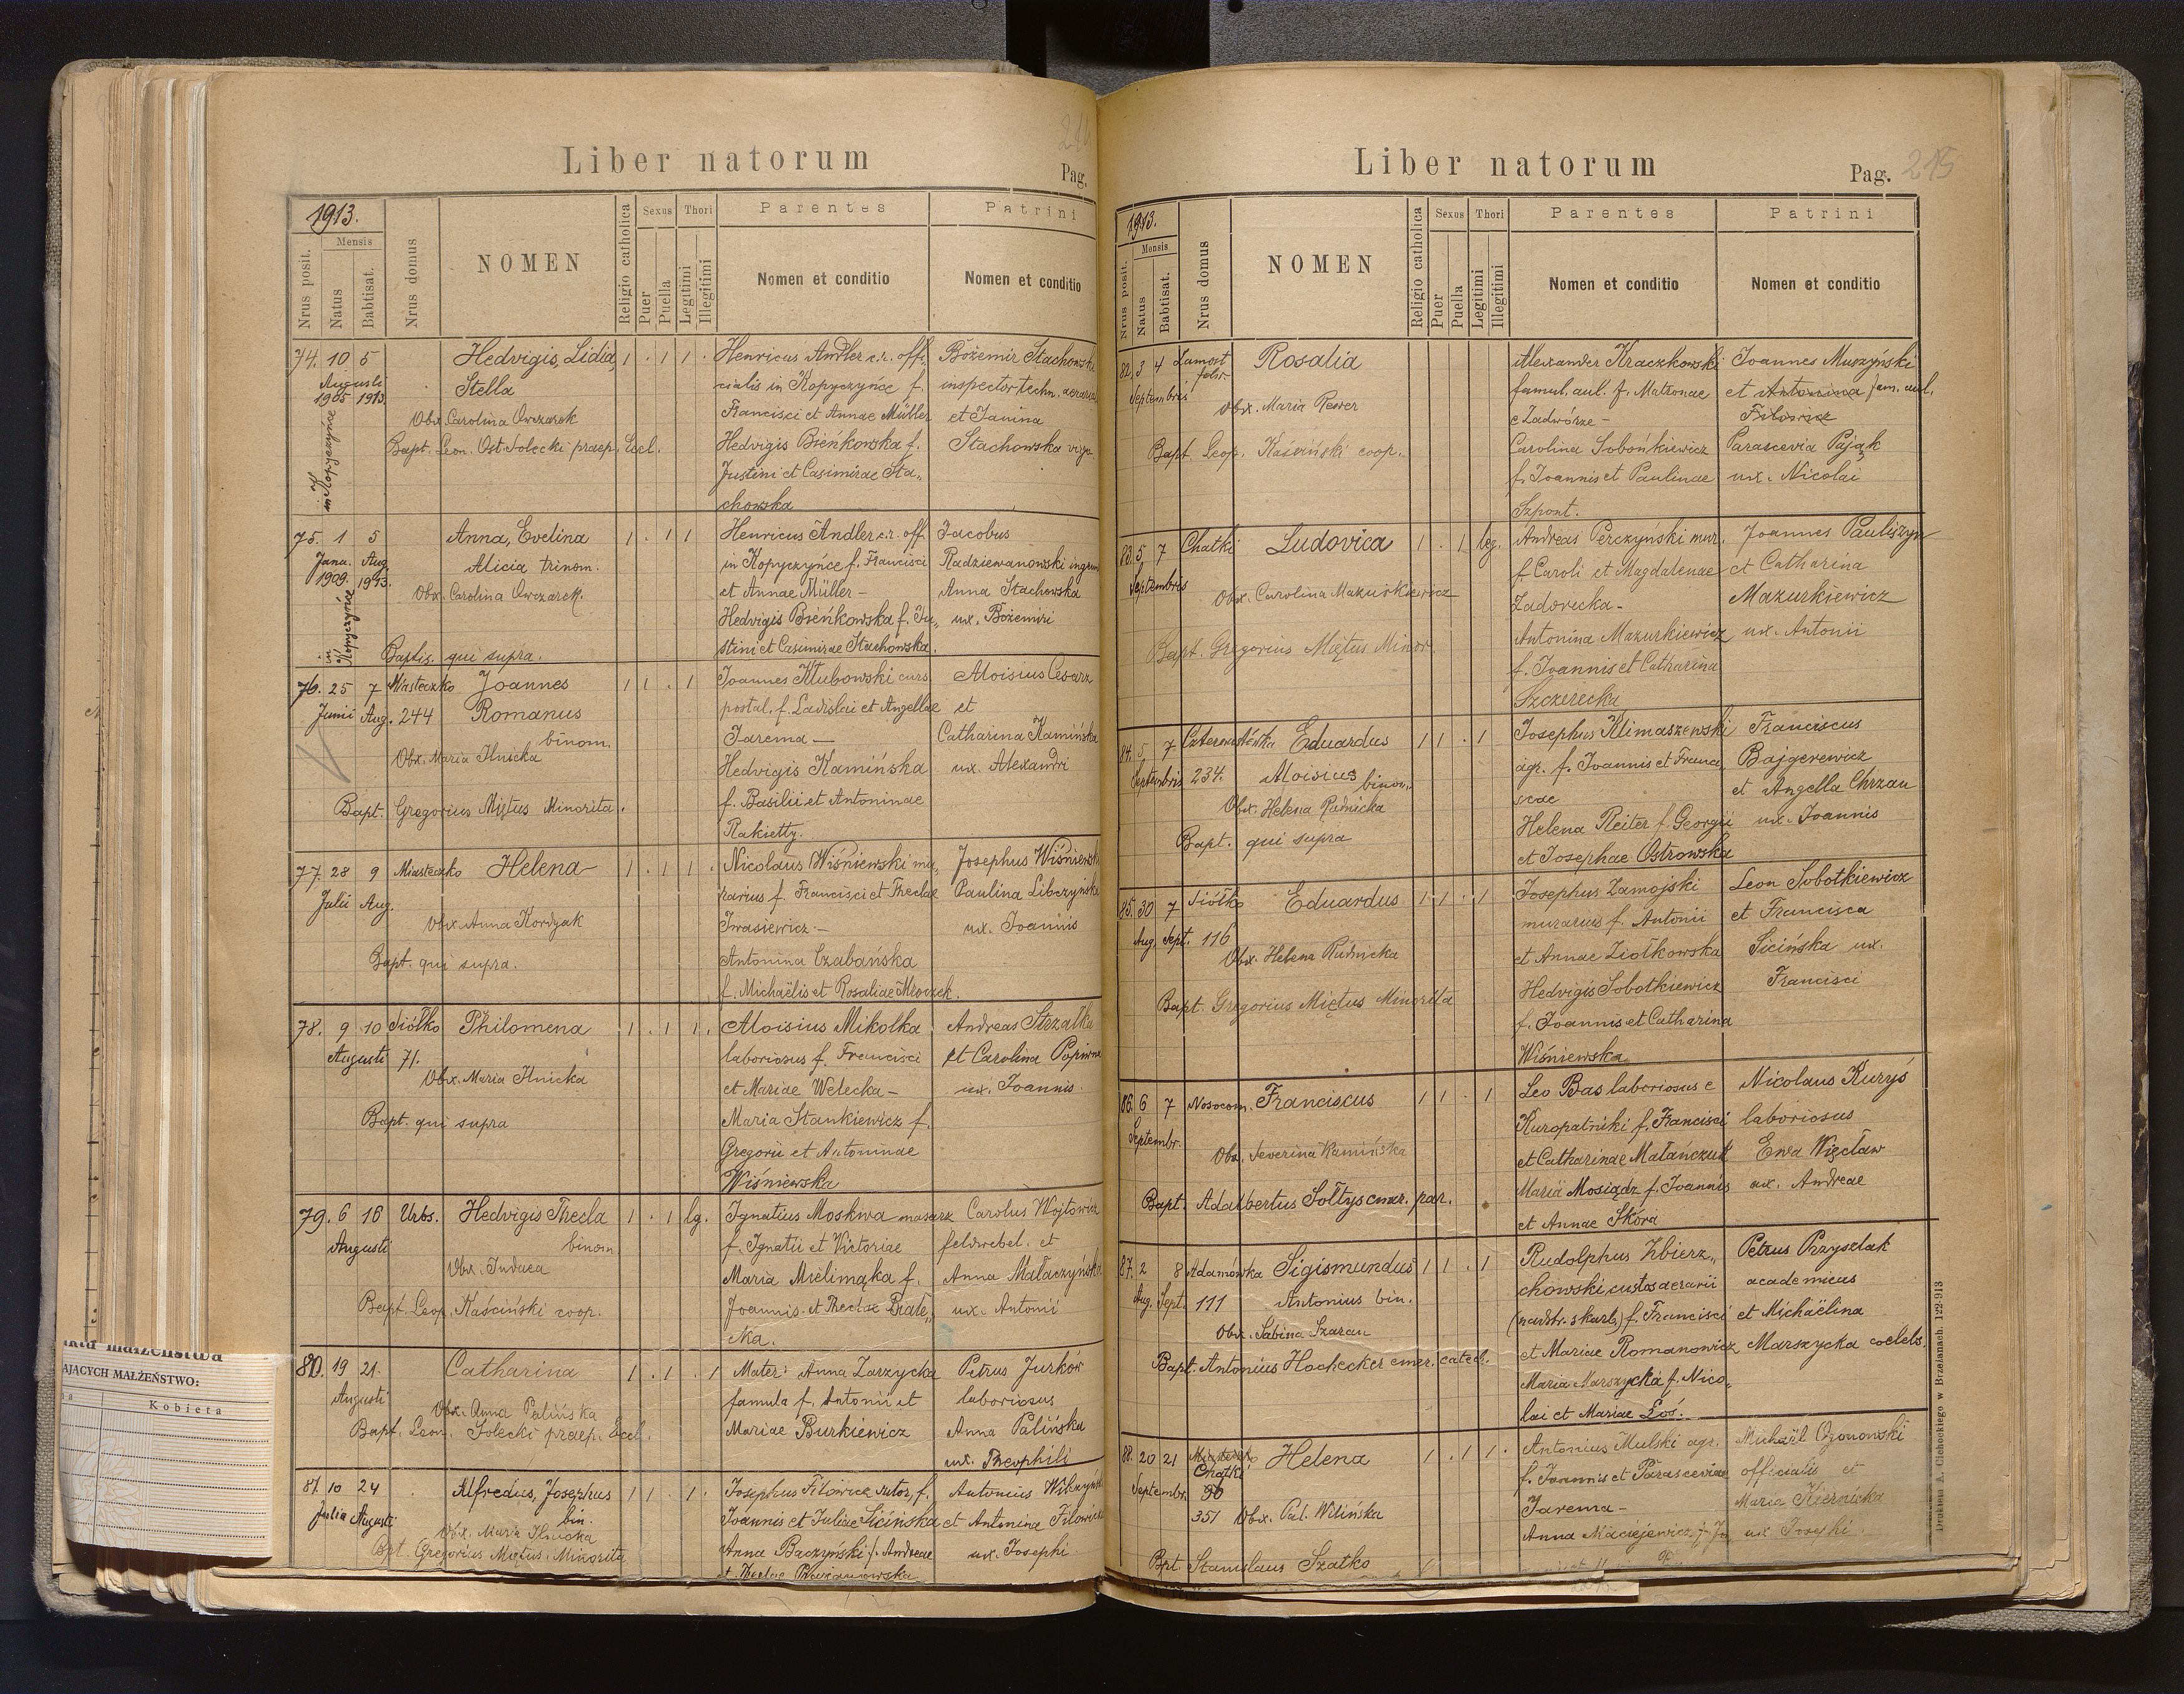 Liber natorum
Pag.
1913.
Nrus posit.
Mensis
Natus
Babtisat.
Nrus domus
NOMEN
Religio catholica
Sexus
Puer
Puella
Thori
Legitimi
Illegitimi
Parentes
Nomen et conditio
Patrini
Nomen et conditio
74. 10 5 Hedvigis, Lidia, 1 . 1 1 . Henricus Andler c.r. offi- Bożemir Stachowski
Augusti Stella cialis in Kopyczyńce f. inspector techn. aerarii
1905 1913. Francisci et Annae Müller et Janina
Obx. Carolina Owczarek Hedvigis Bieńkowska f. Stachowska virgo
Bapt. Leon. Ost. Solecki praep. Eccl. Justini et Casimirae Sta„
in Kopyczyńce chowska
75. 1 5 Anna, Evelina 1 . 1 1 Henricus Andler c.r. off. Jacobus
Janu. Aug. Alicia trinom. in Kopyczyńce f. Francisci Radziewanowski
1909. 1913. Obx. Carolina Owczarek et Annae Müller - Anna Stachowska
in Kopyczyńce Hedvigis Bieńkowska f. Ju„ ux. Bożemiri
Baptis. qui supra. stini et Casimirae Stachowska.
76. 25 7 Miasteczko Joannes 1 1 . 1 Joannes Klubowski curs. Aloisius Cesarz
Junii Aug. 244 Romanus postal. f. Ladislai et Angellae et
binom. Jarema — Catharina Kamińska
Obx. Maria Ilnicka Hedvigis Kamińska ux. Alexandri
f. Basilii et Antoninae
Bapt. Gregorius Miętus Minorita. Rakietty.
77. 28 9 Miasteczko Helena 1 . 1 1 . Nicolaus Wiśniewski mu„ Josephus Wiśniewski
Julii Aug. rarius f. Francisci et Theclae Paulina Libczyńska
Obx. Anna Kordyak Iwasiewicz - ux. Joannis
Bapt. qui supra. Antonina Czabańska
f. Michaëlis et Rosaliae Mroczek.
78. 9 10 Siółko Philomena 1 . 1 1 . Aloisius Mikolka Andreas Strzałka
Augusti 71. laboriosus f. Francisci et Carolina
Obx. Maria Ilnicka et Mariae Welecka - ux. Joannis.
Maria Stankiewicz f.
Bapt. qui supra Gregorii et Antoninae
Wiśniewska
79. 6 16 Urbs. Hedvigis Thecla 1 . 1 lg. Ignatius Moskwa masarz Carolus Wojtowicz
Augusti binom. f. Ignatii et Victoriae feldwebel. et
Obx. Judaea Maria Mielimąka f. Anna Małaczyńska
Bapt. Leop. Kaściński coop. Joannis et Theclae Białe„ ux. Antonii
cka.
80. 19 21. Catharina 1 . 1 . 1 Mater: Anna Zarzycka Petrus Jurków
Augusti famula f. Antonii et laboriosus
Obx. Anna Palińska Mariae Burkiewicz Anna Palińska
Bapt. Leon. Solecki praep. Eccl. ux. Theophili
81. 10 24 Alfredus, Josephus 1 1 . 1 . Josephus Filowicz sutor, f. Antonius Wilczyński
Julia Augusti bin. Joannis et Juliae Sicińska et Antonina Filowicz
Obx. Maria Ilnicka Anna Baczyński f. Andreae ux. Josephi
Bpt. Gregorius Miętus, Minorita
Liber natorum
Pag. 215
1913.
Nrus posit.
Mensis
Natus
Babtisat.
Nrus domus
NOMEN
Religio catholica
Sexus
Puer
Puella
Thori
Legitimi
Illegitimi
Parentes
Nomen et conditio
Patrini
Nomen et conditio
82. 3 4 Rosalia Alexander Kraczkowski Joannes Muszyński
Septembris famul. aul. f. Matronae et Antonina fam. aul.
Obx. Maria Rewer e Zadwórze - Filowicz
Bapt. Leop. Kaściński coop. Carolina Sobońkiewicz Parascevia Pająk
f. Joannis et Paulinae ux. Nicolai
Szpont.
83. 5 7 Chatki Ludovica 1 . 1 leg. Andreas Perczyński mur. Joannes Pauliszyn
Septembris f. Caroli et Magdalenae et Catharina
Obx. Carolina Mazurkiewicz Zadorecka - Mazurkiewicz
Bapt. Gregorius Miętus Minor. Antonina Mazurkiewicz ux. Antonii
f. Joannis et Catharina
Szczerecka
84. 5 7 Eduardus 1 1 . 1 Josephus Klimaszewski Franciscus
Septembris 234. Aloisius binom. agr. f. Joannis et Franci„ Bajgerewicz
Obx. Helena Rudnicka scae et Angella Chrzan
Bapt. qui supra Helena Reiter f. Georgii ux. Joannis
et Josephae Ostrowska
85. 30 7 Siółko Eduardus 1 1 . 1 Josephus Zamojski Leon Sobotkiewicz
Aug. Sept. 116 murarius f. Antonii et Francisca
Obx. Helena Rudnicka et Annae Ziółkowska Sicińska ux.
Bapt. Gregorius Miętus Minorita Hedvigis Sobotkiewicz Francisci
f. Joannis et Catharina
Wiśniewska
86. 6 7 Nosocom. Franciscus 1 1 . 1 Leo Bas laboriosus e Nicolaus Kuryś
Septembr. Kuropatniki f. Francisci laboriosus
Obx. Severina Kamińska et Catharinae Małańczuk Ewa Więcław
Bapt. Adalbertus Sołtys emer. par. Maria Mosiądz f. Joannis ux. Andreae
et Annae Skóra
87. 2 8 Adamówka Sigismundus 1 1 . 1 Rudolphus Zbierz„ Petrus Przysztak
Aug. Sept. 111 Antonius bin. chowski custos aerarii academicus
Obx. Sabina Szaran (nadstr. skarb.) f. Francisci et Michaëlina
Bapt. Antonius Hochecker emer. catech. et Mariae Romanowicz Marszycka coelebs.
Maria Marszycka f. Nico„
lai et Mariae Łoś.
88. 20 21 Miasteczko Helena 1 . 1 1 . Antonius Mulski agr. Michaël Ozonowski
Chatki f. Joannis et Parasceviae officialis et
Septembr. 96 Jarema - Maria Kiernicka
351 Obx. Pal. Wilińska Anna Maciejewicz f. Jo ux Josephi.
Bpt. Stanislaus Szatko
Drukiem A. Cichockiego w Brzeżanach. 122-913
AJĄCYCH MAŁŻEŃSTWO:
Kobieta